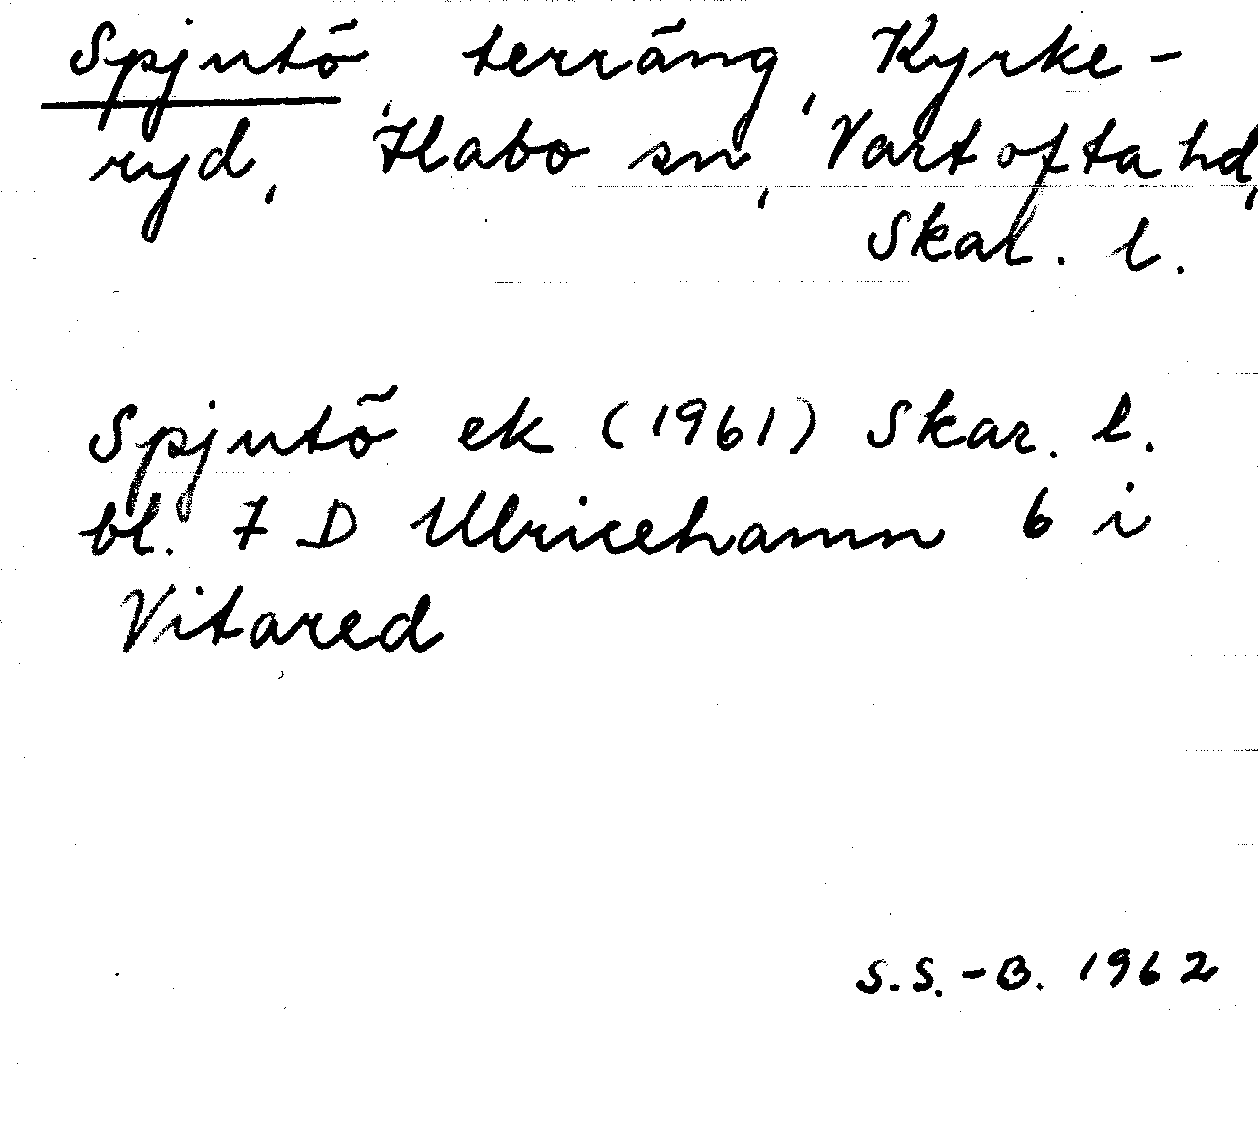 Spjutö, terräng, Kyrke-
ryd, Habo sn, Vartofta hd,
Skar. l.
Spjutö ek (1961) Skar. l.
bl. 7 D Ulricehamn 6 i
Vitared
S.S.-B. 1962